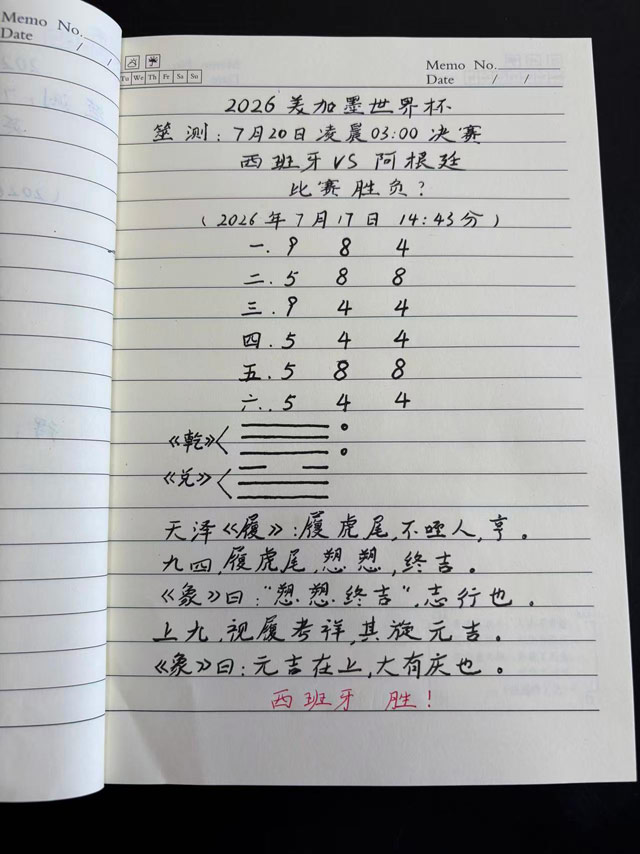 Memo No.
Date / /
Tu We Th Fr Sa Su
Memo No.
Date / /
2026 美加墨世界杯
筮测:7月20日凌晨03:00决赛
西班牙VS阿根廷
比赛胜负?
(2026年7月17日 14:43分)
一. 9 8 4
二. 5 8 8
三. 9 4 4
四. 5 4 4
五. 5 8 8
六. 5 4 4
《乾》
《兑》
天泽《履》:履虎尾,不咥人,亨。
九四,履虎尾,愬愬,终吉。
《象》曰:"愬愬终吉",志行也。
上九,视履考祥,其旋元吉。
《象》曰:元吉在上,大有庆也。
西班牙 胜!